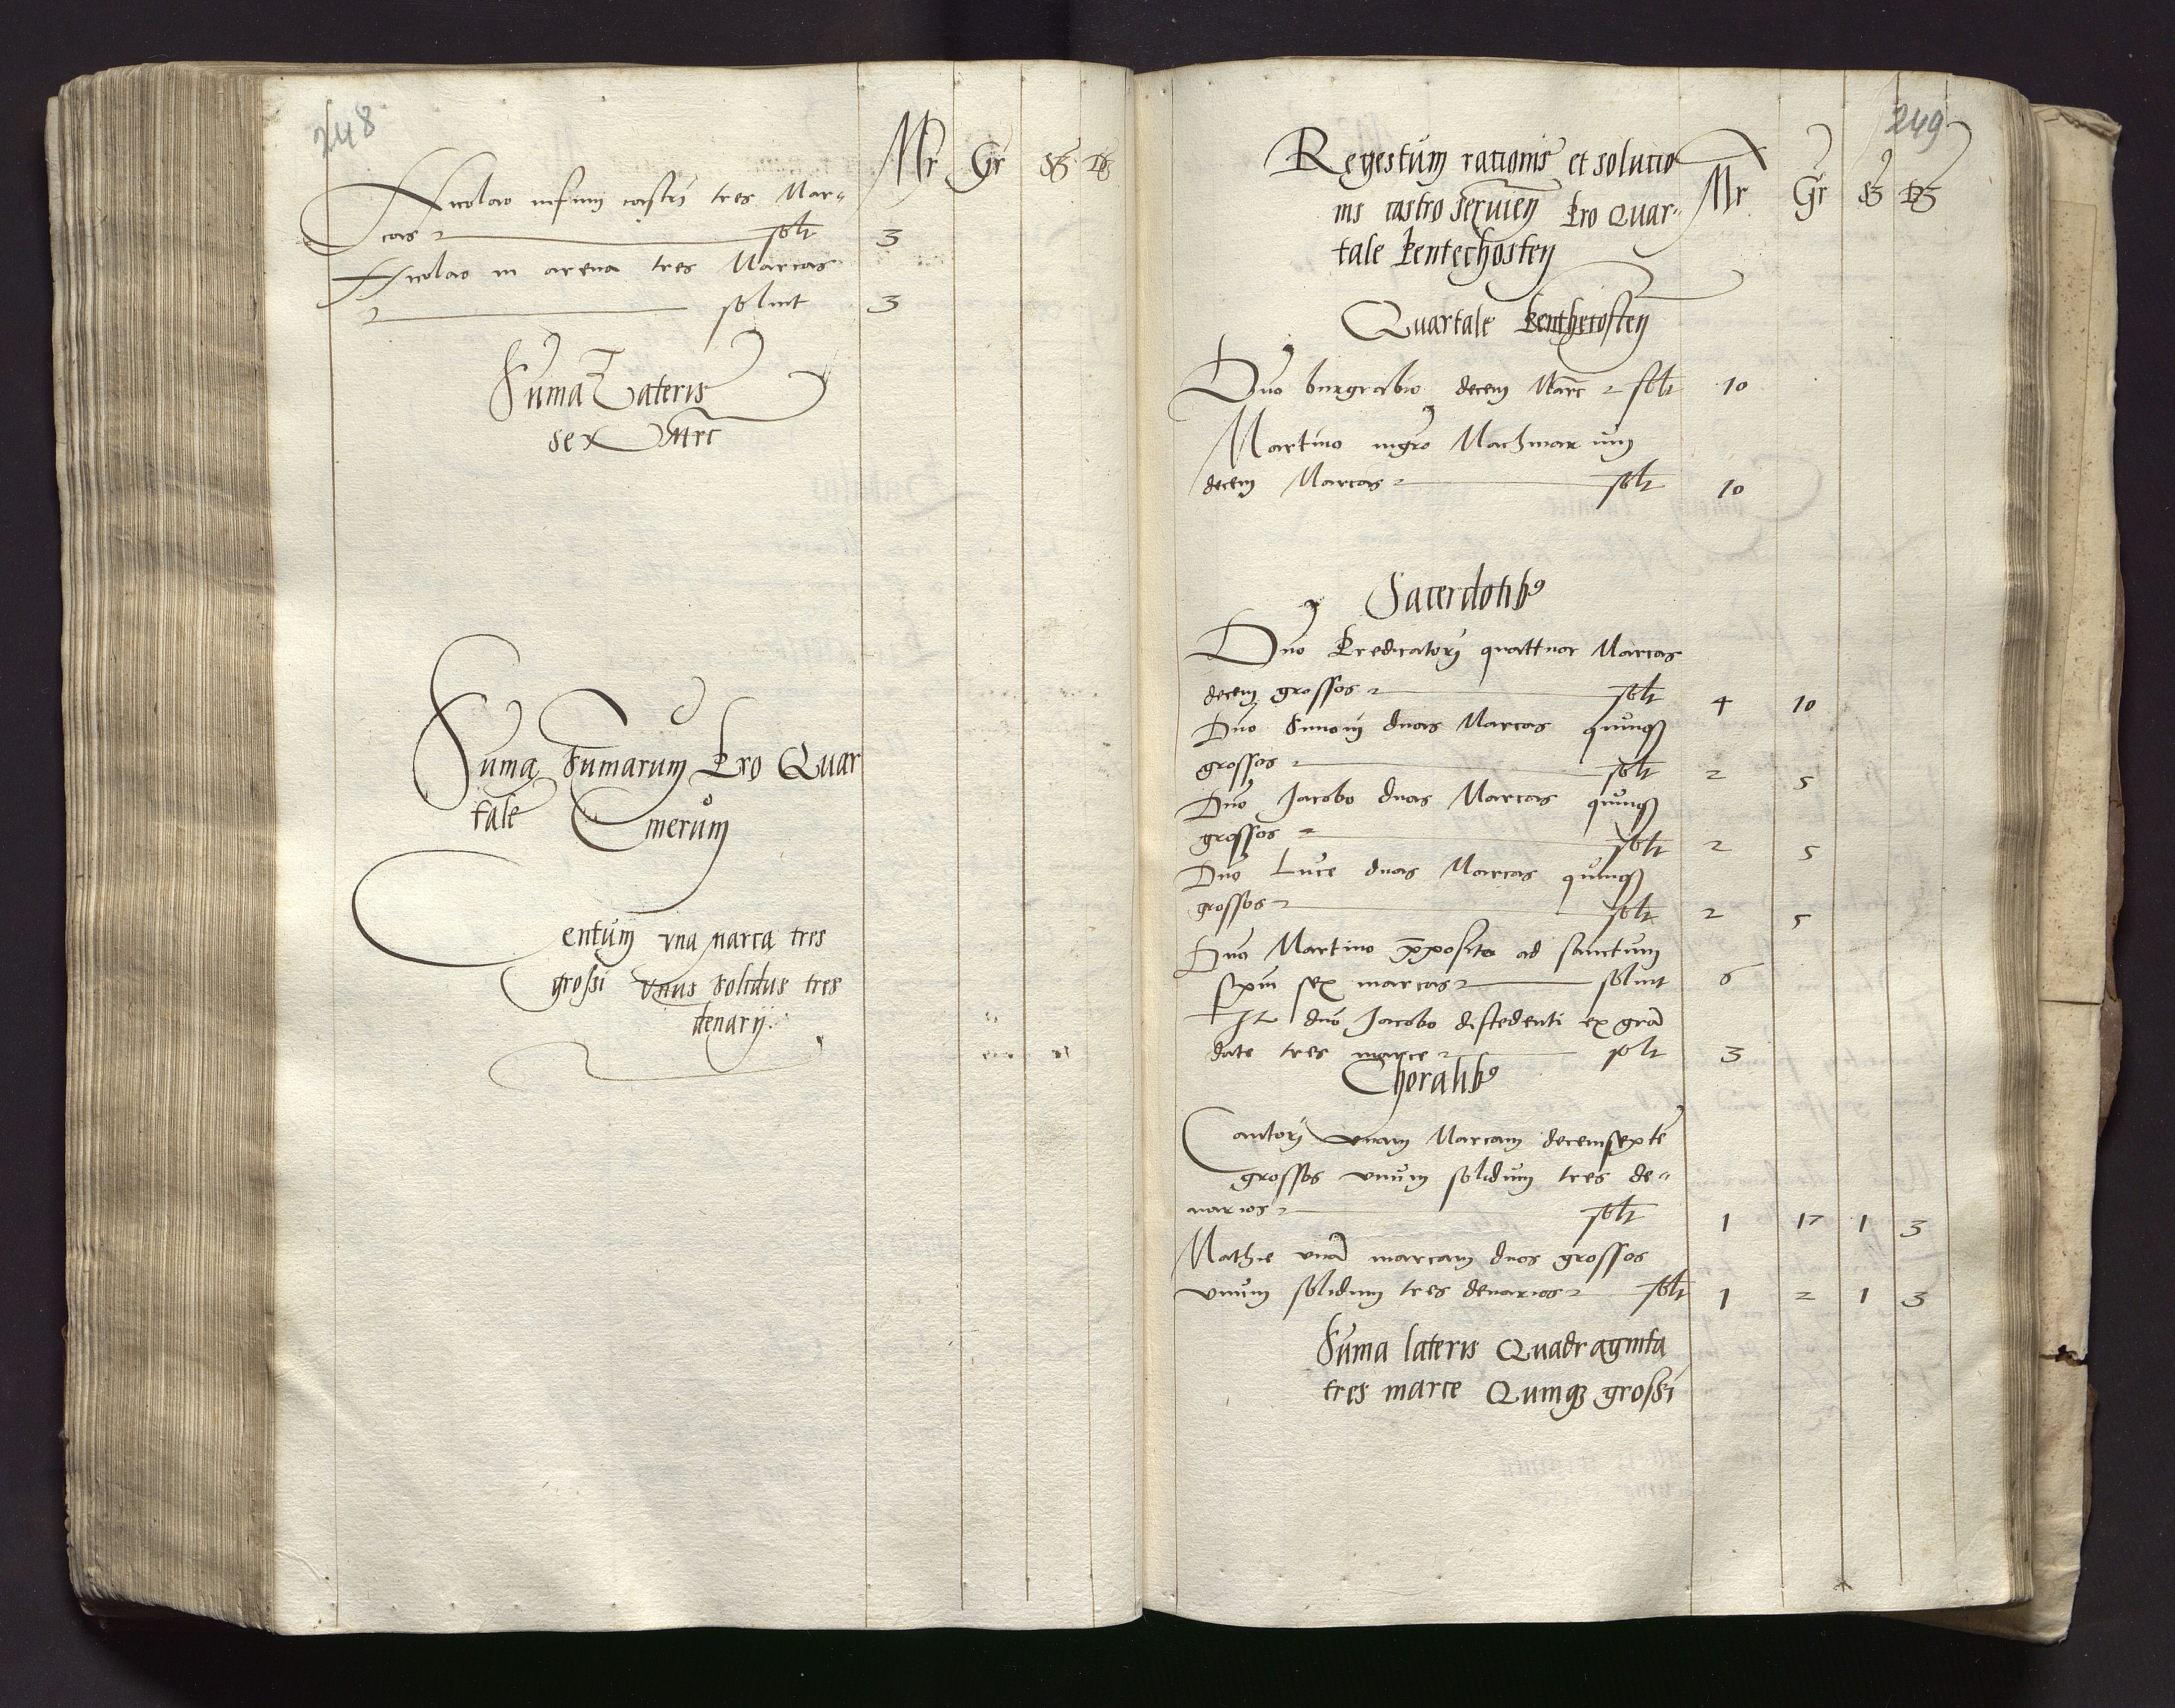 248
Mr Gr ß d
Nicolao infimi castri tres Mar-
cas solt 3
Nicolao in arena tres Marcas
soluit 3
Suma Lateris
sex Mrc
Suma Sumarum Pro Quar
tale Cinerum
Centum vna marca tres
grossi vnus solidus tres
denarij
249
Regestum rationis et solucio Mr Gr ß d
nis castro seruien Pro Quar-
tale Pentechosten
Quartale Penthecosten
Dno burgrabio decem Marc solt 10
Martino nigro Machwar vm
decem Marcas solt 10
Sacerdotib9
Dno Predicatori quattuor Marcas
decem grossos solt 4 10
Dno Simoni duas Marcas quinq3
grossos solt 2 5
Dno Jacobo duas Marcas quinq3
grossos solt 2 5
Dno Luce duas Marcas quinq3
grossos solt 2 5
Dno Martino pposito ad sanctum
spm sex marcas soluit 6
It dno Jacobo discedenti ex gra
date tres marce solt 3
Choralib9
Cantori vnam Marcam decemsepte
grossos vnum solidum tres de-
narios solt 1 17 1 3
Mathie vna marcam duos grossos
vnum solidum tres denarios solt 1 2 1 3
Suma lateris Quadraginta
tres marce Quinq3 grossi